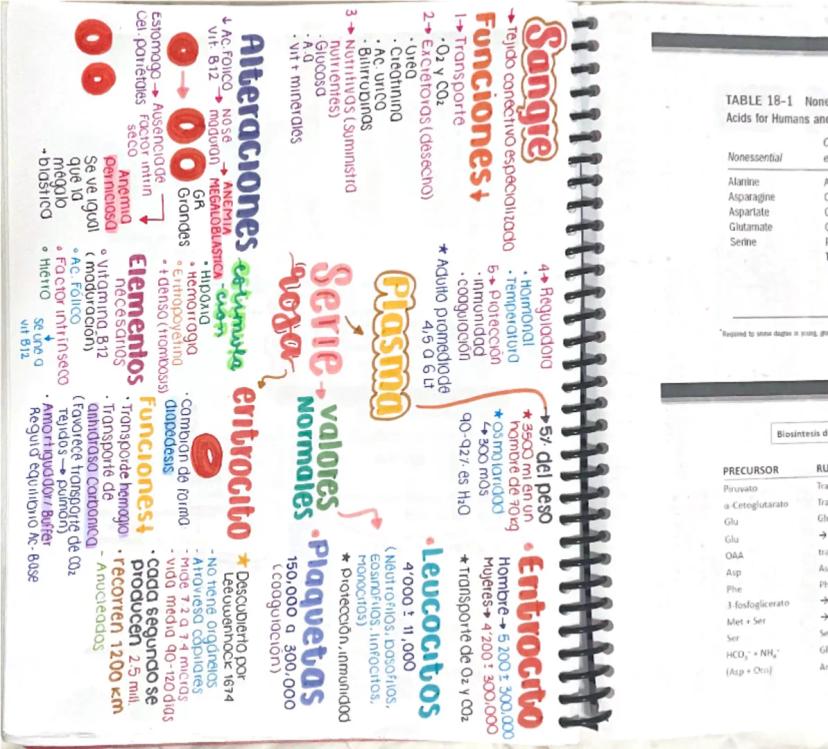 Sangre
→ Tejido conectivo especializado
Funciones↓
1→ Transporte
· O2 y CO2
2→ Excretoras (desecho)
· Urea
· Creatinina
· Ac. urico
· Bilirrubinas
3→ Nutritivas (Suministra
nutrientes)
· Glucosa
· A.a
· Vit + minerales
4→ Reguladora
· Hormonal
· Temperatura
5→ Protección
· inmunidad
· coagulación
★ Adulto promedio de
4,5 a 6 Lt
Plasma
→ 5% del peso
★ 3500 ml en un
hombre de 70kg
★ osmolaridad
↳ 300 mOs
90-92% es H2O
Serie
roja
→ valores
Normales
· Entrocito
Hombre→ 5'200 ± 300,000
Mujeres→ 4'200 ± 300,000
★ Transporte de O2 y CO2
· Leucocitos
4'000 ± 11,000
(Neutrofilos, basofilos,
Eosinofilos, linfocitos,
Monocitos)
★ Protección, inmunidad
· Plaquetas
150,000 a 300,000
(coagulación)
Alteraciones
↓ Ac. Folico → No se → ANEMIA
vit. B12 maduran MEGALOBLASTICA
GR
Grandes
Estomago → Ausencia de
Cel. parietales Factor intrin
seco
Anemia
perniciosa
Se ve igual
que la
megalo
blastica
estimula
-ción
· Hipoxia
· Hemorragia
· Eritropoyetina
· + denso (trombosis)
Elementos
necesarios
° Vitamina B12
(maduración)
° Ac. Fólico
° Factor intrínseco
° Hierro
se une a
vit B12
eritrocito
· Cambian de forma:
diapedesis
Funciones↓
· Transporte hemoglo
· Transporte de
anhidrasa carbonica
(Favorece transporte de CO2
Tejidos → pulmón)
· Amortiguador/Buffer
Regula equilibrio Ac-Base
★ Descubierto por
Leeuwenhock 1674
- No tiene orgánelos
- Atraviesa capilares
- Mide 7.2 a 7.4 micras
- vida media 90-120 días
· cada segundo se
producen 2.5 mill.
· recorren 1200 km
- Anucleados
TABLE 18-1 None
Acids for Humans and
Nonessential
Alanine
Asparagine
Aspartate
Glutamate
Serine
Biosíntesis d
PRECURSOR
Piruvato
α-Cetoglutarato
Glu
Glu
OAA
Asp
Phe
3-fosfoglicerato
Met + Ser
Ser
HCO3- + NH4+
(Asp + Orn)